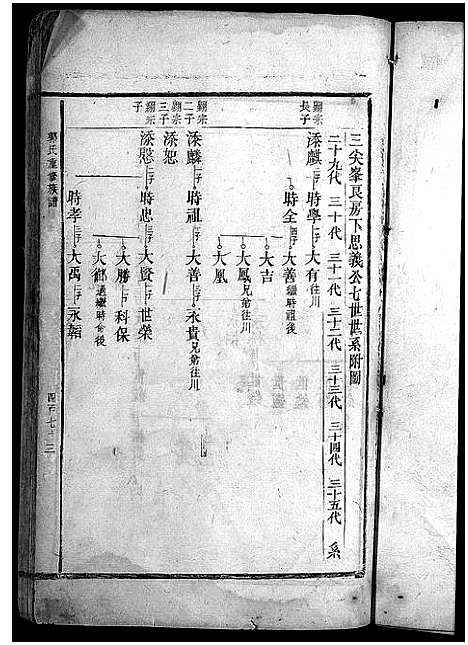 三尖峯良房下思義公七世世系附圖
二十九代 三十代 三十一代 三十二代 三十三代 三十四代 三十五代 系
顯宗長子 添麒 二子 時學 大有 往川
時全 大善 繼時祖後
大吉
大鳳 兄弟往川
大凰
顯宗二子 添麟 一子 時祖 大善 永貴 兄弟往川
顯宗三子 添恕
顯宗子 添慰 二子 時忠 大賢 世榮
大勝 科保
大鄉
時孝 大禹 永韜
氏重修族譜
四百七十三